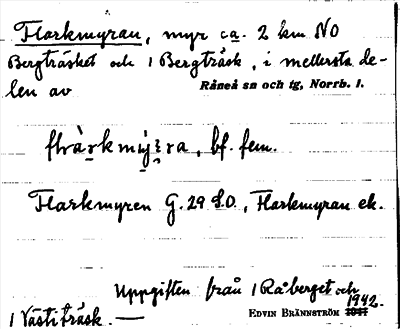 Flarkmyran, myr ca. 2 km NO
Bergträsket och 1 Bergträsk, i mellersta de-
len av Råneå sn och tg, Norrb. l.
bf. fem.
Flarkmyren G. 29 S.O., Flarkmyran ek.
Uppgiften från 1 Råberget och
1 Västiträsk. — EDVIN BRÄNNSTRÖM 1942.